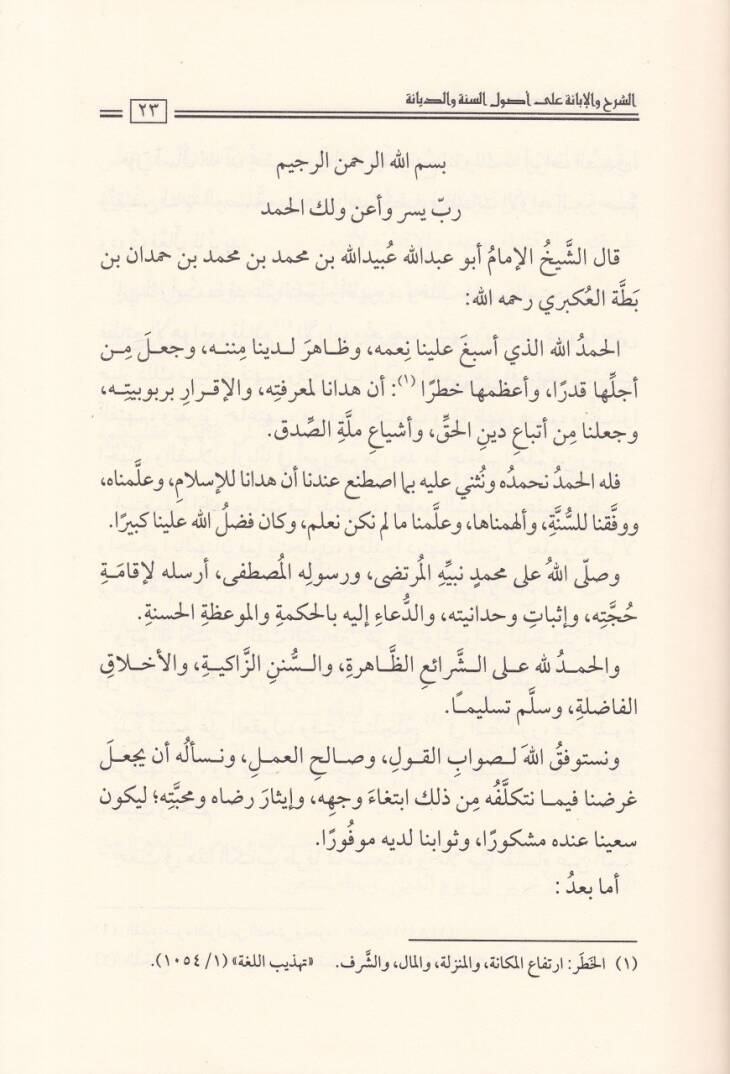 الشرح والإبانة على أصول السنة والديانة
٢٣
بسم الله الرحمن الرحيم
ربّ يسر وأعن ولك الحمد
قال الشَّيخُ الإمامُ أبو عبدالله عُبيدالله بن محمد بن محمد بن حمدان بن
بَطَّة العُكبري رحمه الله:
الحمدُ الله الذي أسبغَ علينا نِعمه، وظاهرَ لدينا مِننه، وجعلَ مِن
أجلِّها قدرًا، وأعظمها خطرًا (١): أن هدانا لمعرفتِه، والإقرارِ بربوبيتِه،
وجعلنا مِن أتباعِ دينِ الحقِّ، وأشياعِ ملَّةِ الصِّدق.
فله الحمدُ نحمدُه ونُثني عليه بما اصطنع عندنا أن هدانا للإسلامِ، وعلَّمناه،
ووفَّقنا للسُّنَّةِ، وألهمناها، وعلَّمنا ما لم نكن نعلم، وكان فضلُ الله علينا كبيرًا.
وصلّى اللهُ على محمدٍ نبيِّهِ المُرتضى، ورسولِه المُصطفى، أرسله لإقامَةِ
حُجَّتِه، وإثباتِ وحدانيته، والدُّعاءِ إليه بالحكمةِ والموعظةِ الحسنةِ.
والحمدُ لله على الشَّرائعِ الظَّاهرةِ، والسُّننِ الزَّاكيةِ، والأخلاقِ
الفاضلةِ، وسلَّم تسليمًا.
ونستوفقُ اللهَ لصوابِ القولِ، وصالحِ العملِ، ونسألُه أن يجعلَ
غرضنا فيما نتكلَّفُه مِن ذلك ابتغاءَ وجهِه، وإيثارَ رضاه ومحبَّتِه؛ ليكون
سعينا عنده مشكورًا، وثوابنا لديه موفُورًا.
أما بعدُ :
(١) الخَطَر: ارتفاع المكانة، والمنزلة، والمال، والشَّرف. «تهذيب اللغة» (١/ ١٠٥٤).